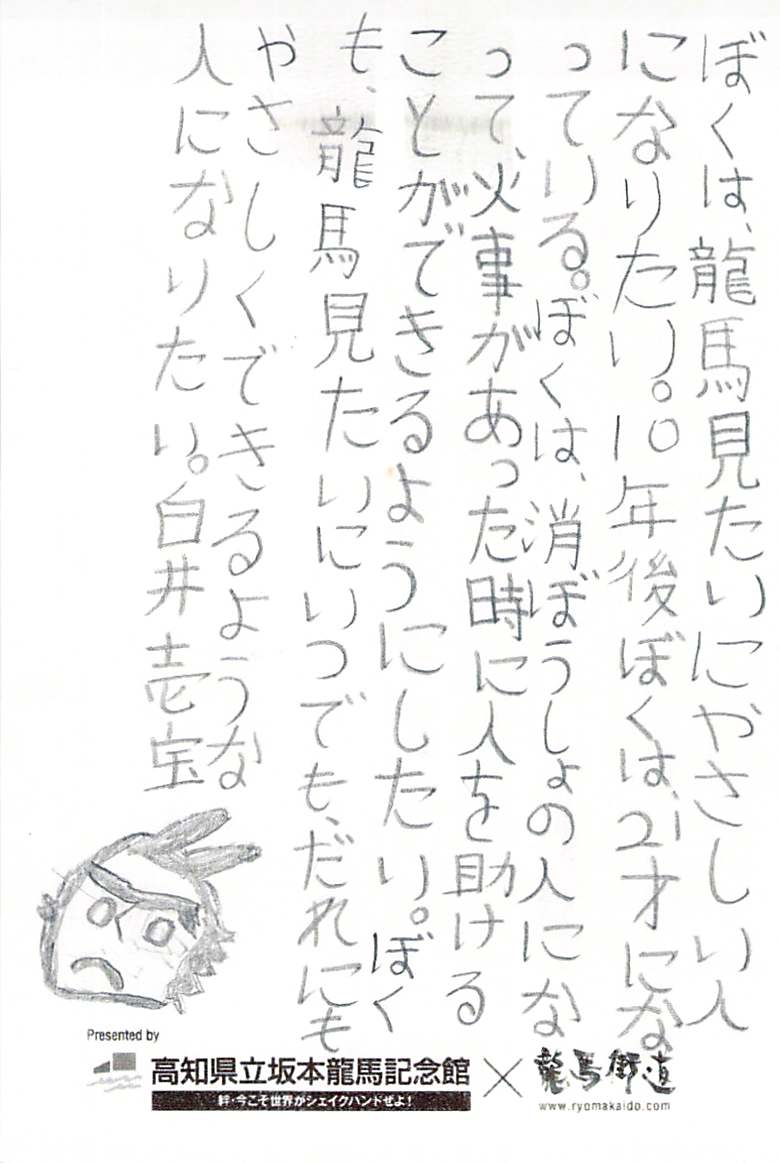 ぼくは、龍馬見たいにやさしい人
になりたい。10年後ぼくは、21才にな
っている。ぼくは、消ぼうしょの人にな
って、火事があった時に人を助ける
ことができるようにしたい。ぼく
も、龍馬見たいにいつでも、だれにも
やさしくできるような
人になりたい。白井壱宝
Presented by
高知県立坂本龍馬記念館×龍馬街道
絆・今こそ世界がシェイクハンドぜよ!
www.ryomakaido.com